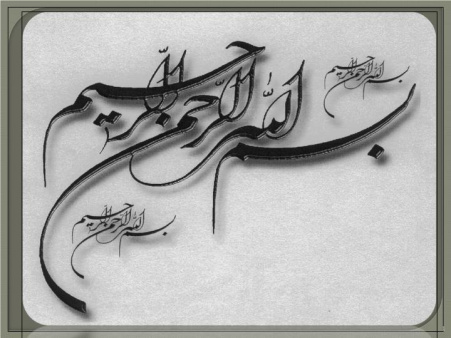 بسم الله الرحمن الرحیم
بسم الله الرحمن الرحیم
بسم الله الرحمن الرحیم